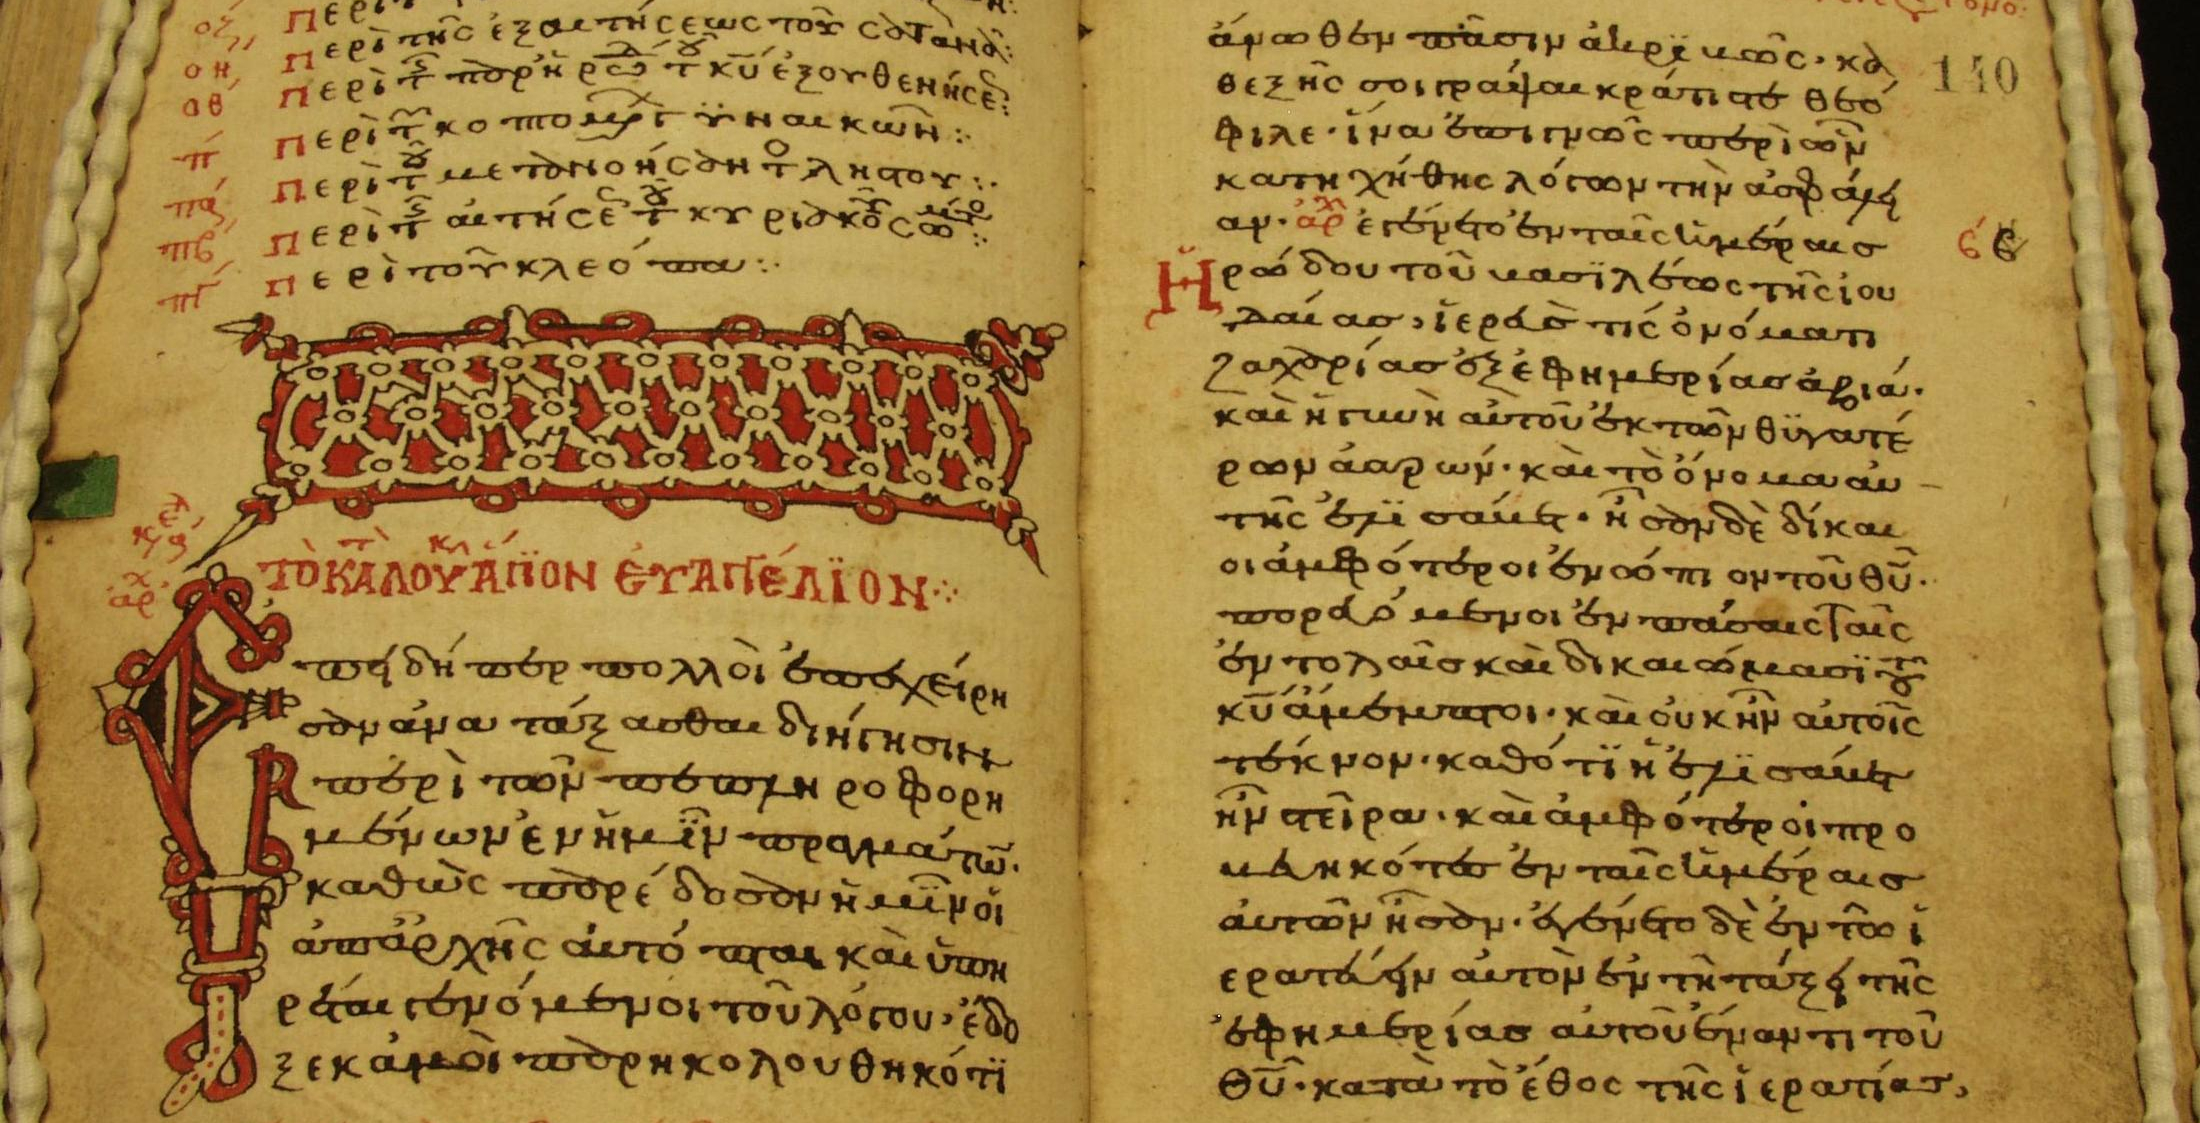 οη Περὶ τῆς ἐξαιτήσεως τοῦ σατανᾶ:
οθ Περὶ τ παρ ἡρώδου τ κυ ἐξουθενήσε:
π Περὶ τ κοπτομ γυναικῶν:
πα Περὶ τοῦ μετανοήσαντος ληστοῦ:
πβ Περὶ τ αἰτήσε τοῦ κυριακοῦ σώματο:
πγ Περὶ τοῦ κλεόπα:
ΤῸ ΚΑΤᾺ ΛΟΥΚΑ͂Ν ἍΓΙΟΝ ἘΥΑΓΓΈΛΪΟΝ
Ἐπειδήπερ πολλοὶ ἐπεχείρη
σαν ἀναταξασθαι διήγησιν
περὶ τῶν πεπληροφορη
μένων ἐν ἡμῖν πραγμάτω.
καθὼς παρέδοσαν ἡμῖν οἱ
ἀπαρχῆς αυτόπται καὶ ὑπη
ρέται γενόμενοι τοῦ λόγου. ἔδο
ξε κἀμοὶ παρηκολουθηκότϊ
ἄνωθεν πᾶσιν ἀκρϊβῶς. κα
θεξῆς σοι γράψαι κράτιστε θεό
φιλε. ἵνα ἐπιγνῶς περὶ ὧν
κατηχήθης λόγων τὴν ἀσφάλει
αν. ἀρχ ἐγένετο ἐν ταῖς ἡμέραις
Ἡρώδου τοῦ βασϊλέως τῆς ἰου
δαίας, ἱερεύς τίς ὀνόματι
ζαχαρίας ἐξ ἐφημερίας ἀβιά.
καὶ ἡ γυνὴ αὐτοῦ ἐκ τῶν θϋγατέ
ρων ἀαρών. καὶ τὸ ὄνομα αὐ
τῆς ἐλϊσάβετ. ἦσαν δὲ δίκαι
οι ἀμφότεροι ἐνώπιον τοῦ θυ.
πορευόμενοι ἐν πάσαις ταῖς
ἐντολαῖς καὶ δικαιώμασϊ τοῦ
κυ ἄμεμπτοι. καὶ οὐκ ἦν αὐτοῖς
τέκνον. καθότϊ ἡ ἐλϊσάβετ
ἦν στεῖρα. καὶ ἀμφότεροι προ
βεβηκότες ἐν ταῖς ἡμέραις
αὐτῶν ἦσαν. ἐγένετο δὲ ἐν τῶ ἱ
ερατεύειν αὐτὸν ἐν τῆ τάξει τῆς
ἐφημερίας αὐτοῦ ἔναντι τοῦ
θυ. κατὰ τὸ ἔθος τῆς ἱερατείας,
140